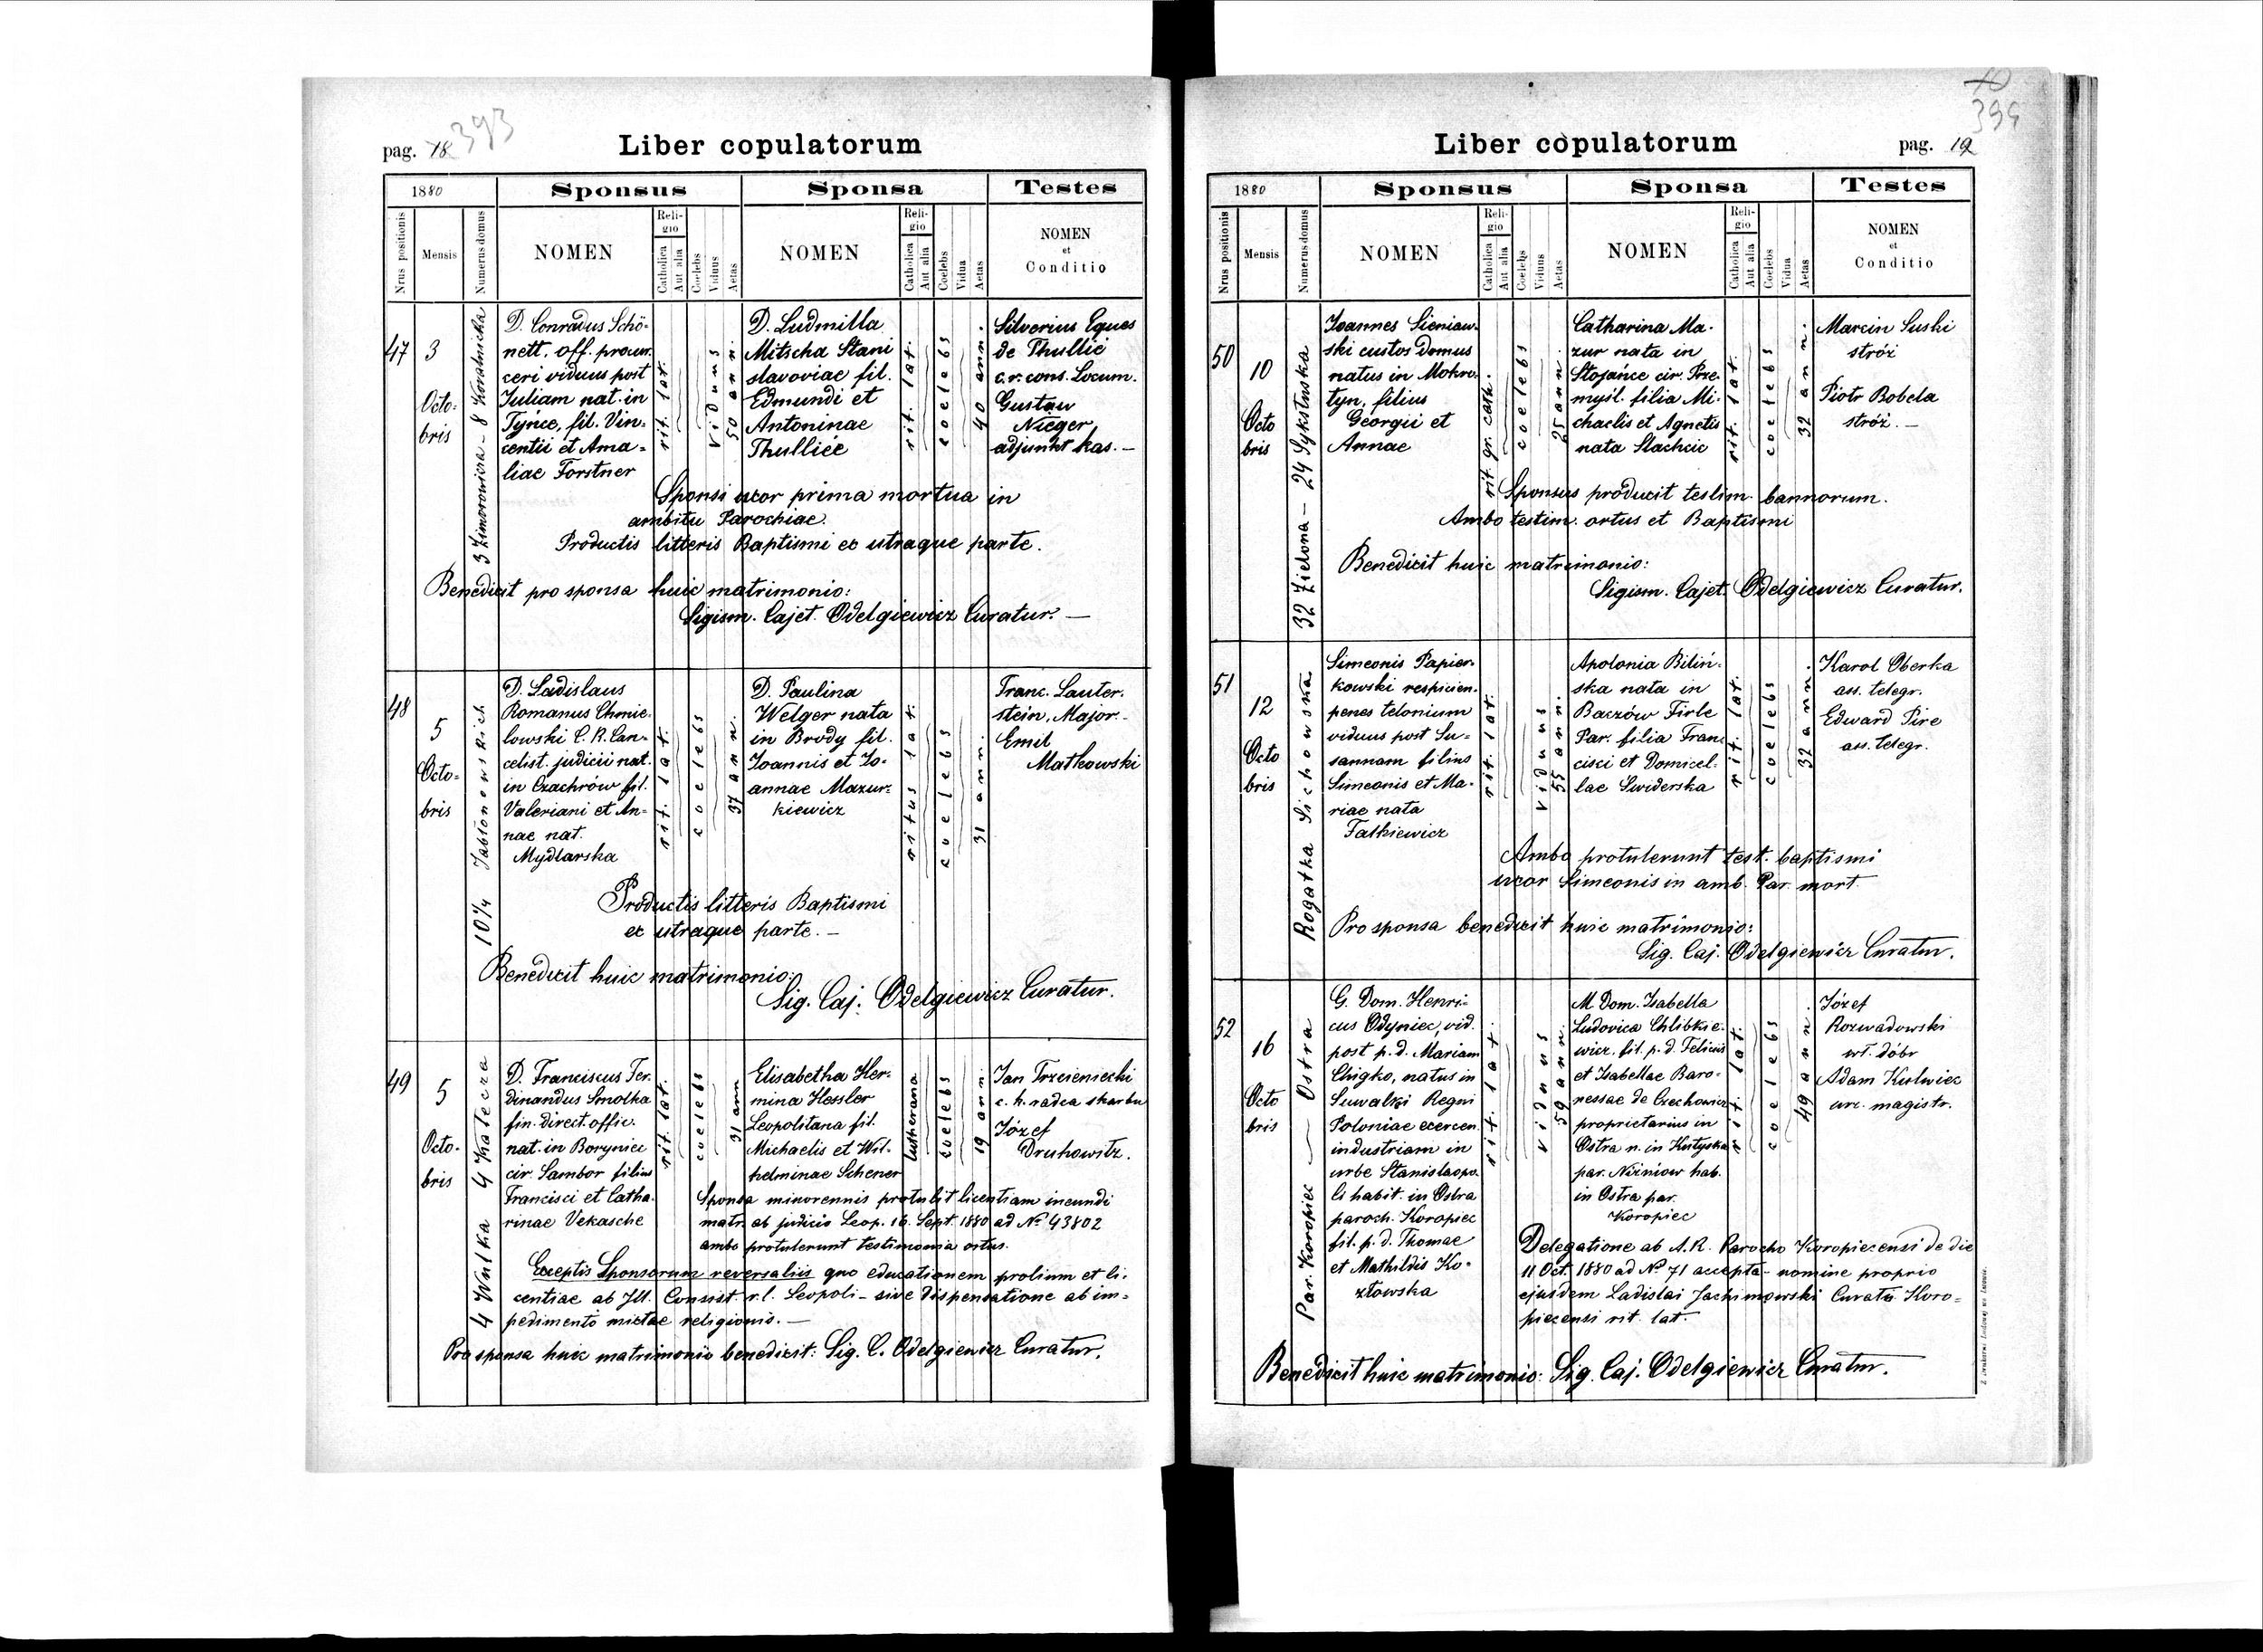 pag. 18
393
Liber copulatorum
1880
Sponsus
Sponsa
Testes
Nrus positionis
Mensis
Numerus domus
NOMEN
Religio
Catholica
Aut alia
Coelebs
Viduus
Aetas
NOMEN
Religio
Catholica
Aut alia
Coelebs
Vidua
Aetas
NOMEN
et
Conditio
47
3
Octo-
bris
3 Zimorowicza - 8 Kopalnicka
D. Conradus Schö-
nett, off. procur.
ceri viduus post
Juliam nat. in
Tyńce, fil. Vin-
centii et Ama-
liae Forstner
rit. lat.
viduus
50 ann.
D. Ludmilla
Mitscha Stani
slavoviae fil.
Edmundi et
Antoninae
Thulliée
rit. lat.
coelebs
40 ann.
Silverius Eques
de Thullié
c.r. cons. Locum.
Gustaw
Nieger
adjunkt kas. —
Sponsi uxor prima mortua in
ambitu Parochiae.
Productis litteris Baptismi ex utraque parte.
Benedixit pro sponsa huic matrimonio:
Sigism. Cajet. Odelgiewicz Curatur. —
48
5
Octo-
bris
10 ¼ Jabłonowskich
D. Ladislaus
Romanus Chmie-
lowski C. R. Can-
celist. judicii nat.
in Czachrów fil.
Valeriani et An-
nae nat.
Mydlarska
rit. lat.
coelebs
37 ann.
D. Paulina
Welger nata
in Brody fil.
Joannis et Jo-
annae Mazur-
kiewicz
ritus lat.
coelebs
31 ann.
Franc. Lauter-
stein, Major.
Emil
Matkowski
Productis litteris Baptismi
ex utraque parte. —
Benedixit huic matrimonio:
Sig. Caj. Odelgiewicz Curatur.
49
5
Octo-
bris
4 Wulka 4 Kalecza
D. Franciscus Fer-
dinandus Smolka
fin. direct. offic.
nat. in Borynicc
cir. Sambor filius
Francisci et Catha-
rinae Vekasche
rit. lat.
coelebs
31 ann
Elisabetha Her-
mina Hessler
Leopolitana fil.
Michaelis et Wil-
helminae Schener
lutherana
coelebs
19 ann.
Jan Trzcieniecki
c. k. radca skarbu
Józef
Druhowitz.
Sponsa minorennis protulit licentiam ineundi
matr. ab judicio Leop. 16. Sept. 1880 ad Nº 43802
ambo protulerunt testimonia ortus.
Exceptis Sponsorum reversaliis quo educationem prolium et li-
centiae ab Ill. Consist. r.l. Leopoli - sive dispensatione ab im-
pedimento mixtae religionis. —
Pro sponsa huic matrimonio benedixit: Sig. C. Odelgiewicz Curatur.
10
394
Liber copulatorum
pag. 19
1880
Sponsus
Sponsa
Testes
Nrus positionis
Mensis
Numerus domus
NOMEN
Religio
Catholica
Aut alia
Coelebs
Viduus
Aetas
NOMEN
Religio
Catholica
Aut alia
Coelebs
Vidua
Aetas
NOMEN
et
Conditio
50
10
Octo
bris
32 Zielona — 24 Sykstuska
Joannes Sieniaw-
ski custos domus
natus in Mokro-
tyn, filius
Georgii et
Annae
rit. gr. cath.
coelebs
25 ann.
Catharina Ma-
zur nata in
Stojańce cir. Prze-
myśl. filia Mi-
chaelis et Agnetis
nata Stachcic
rit. lat.
coelebs
32 ann.
Marcin Suski
stróż
Piotr Bobela
stróż. —
Sponsus producit testim. bannorum.
Ambo testim. ortus et Baptismi
Benedixit huic matrimonio:
Sigism. Cajet. Odelgiewicz Curatur.
51
12
Octo
bris
Rogatka Sichowska
Simeonis Papier-
kowski respicien.
penes telonium
viduus post Su-
sannam filius
Simeonis et Ma-
riae nata
Falkiewicz
rit. lat.
viduus
55 ann.
Apolonia Biliń-
ska nata in
Baczów Firle
Par. filia Fran-
cisci et Domicel-
lae Swiderska
rit. lat.
coelebs
32 ann.
Karol Oberka
ass. telegr.
Edward Pire
ass. telegr.
Ambo protulerunt test. baptismi
uxor Simeonis in amb. Par. mort.
Pro sponsa benedixit huic matrimonio:
Sig. Caj. Odelgiewicz Curatur.
52
16
Octo
bris
Par. Koropiec — Ostra
G. Dom. Henri-
cus Odyniec, vid.
post p. d. Mariam
Chigko, natus in
Suwalki Regni
Poloniae exercen.
industriam in
urbe Stanislaopo-
li habit. in Ostra
paroch. Koropiec
fil. p. d. Thomae
et Mathildis Ko-
złowska
rit. lat.
viduus
59 ann.
M. Dom. Isabella
Ludovica Chlibkie-
wicz, fil. p. d. Felicis
et Isabellae Baro-
nessae de Czechowicz
proprietarius in
Ostra n. in Kutyska
par. Niżniow hab.
in Ostra par.
Koropiec
rit. lat.
coelebs
49 ann.
Józef
Rozwadowski
wł. dóbr
Adam Kulwiec
urz. magistr.
Delegatione ab A. R. Parocho Koropiecensi de die
11 Oct. 1880 ad Nº 71 accepta - nomine proprio
ejusdem Ladislai Jachimowski Curato Koro-
piecensi rit. lat.
Benedixit huic matrimonio: Sig. Caj. Odelgiewicz Curatur.